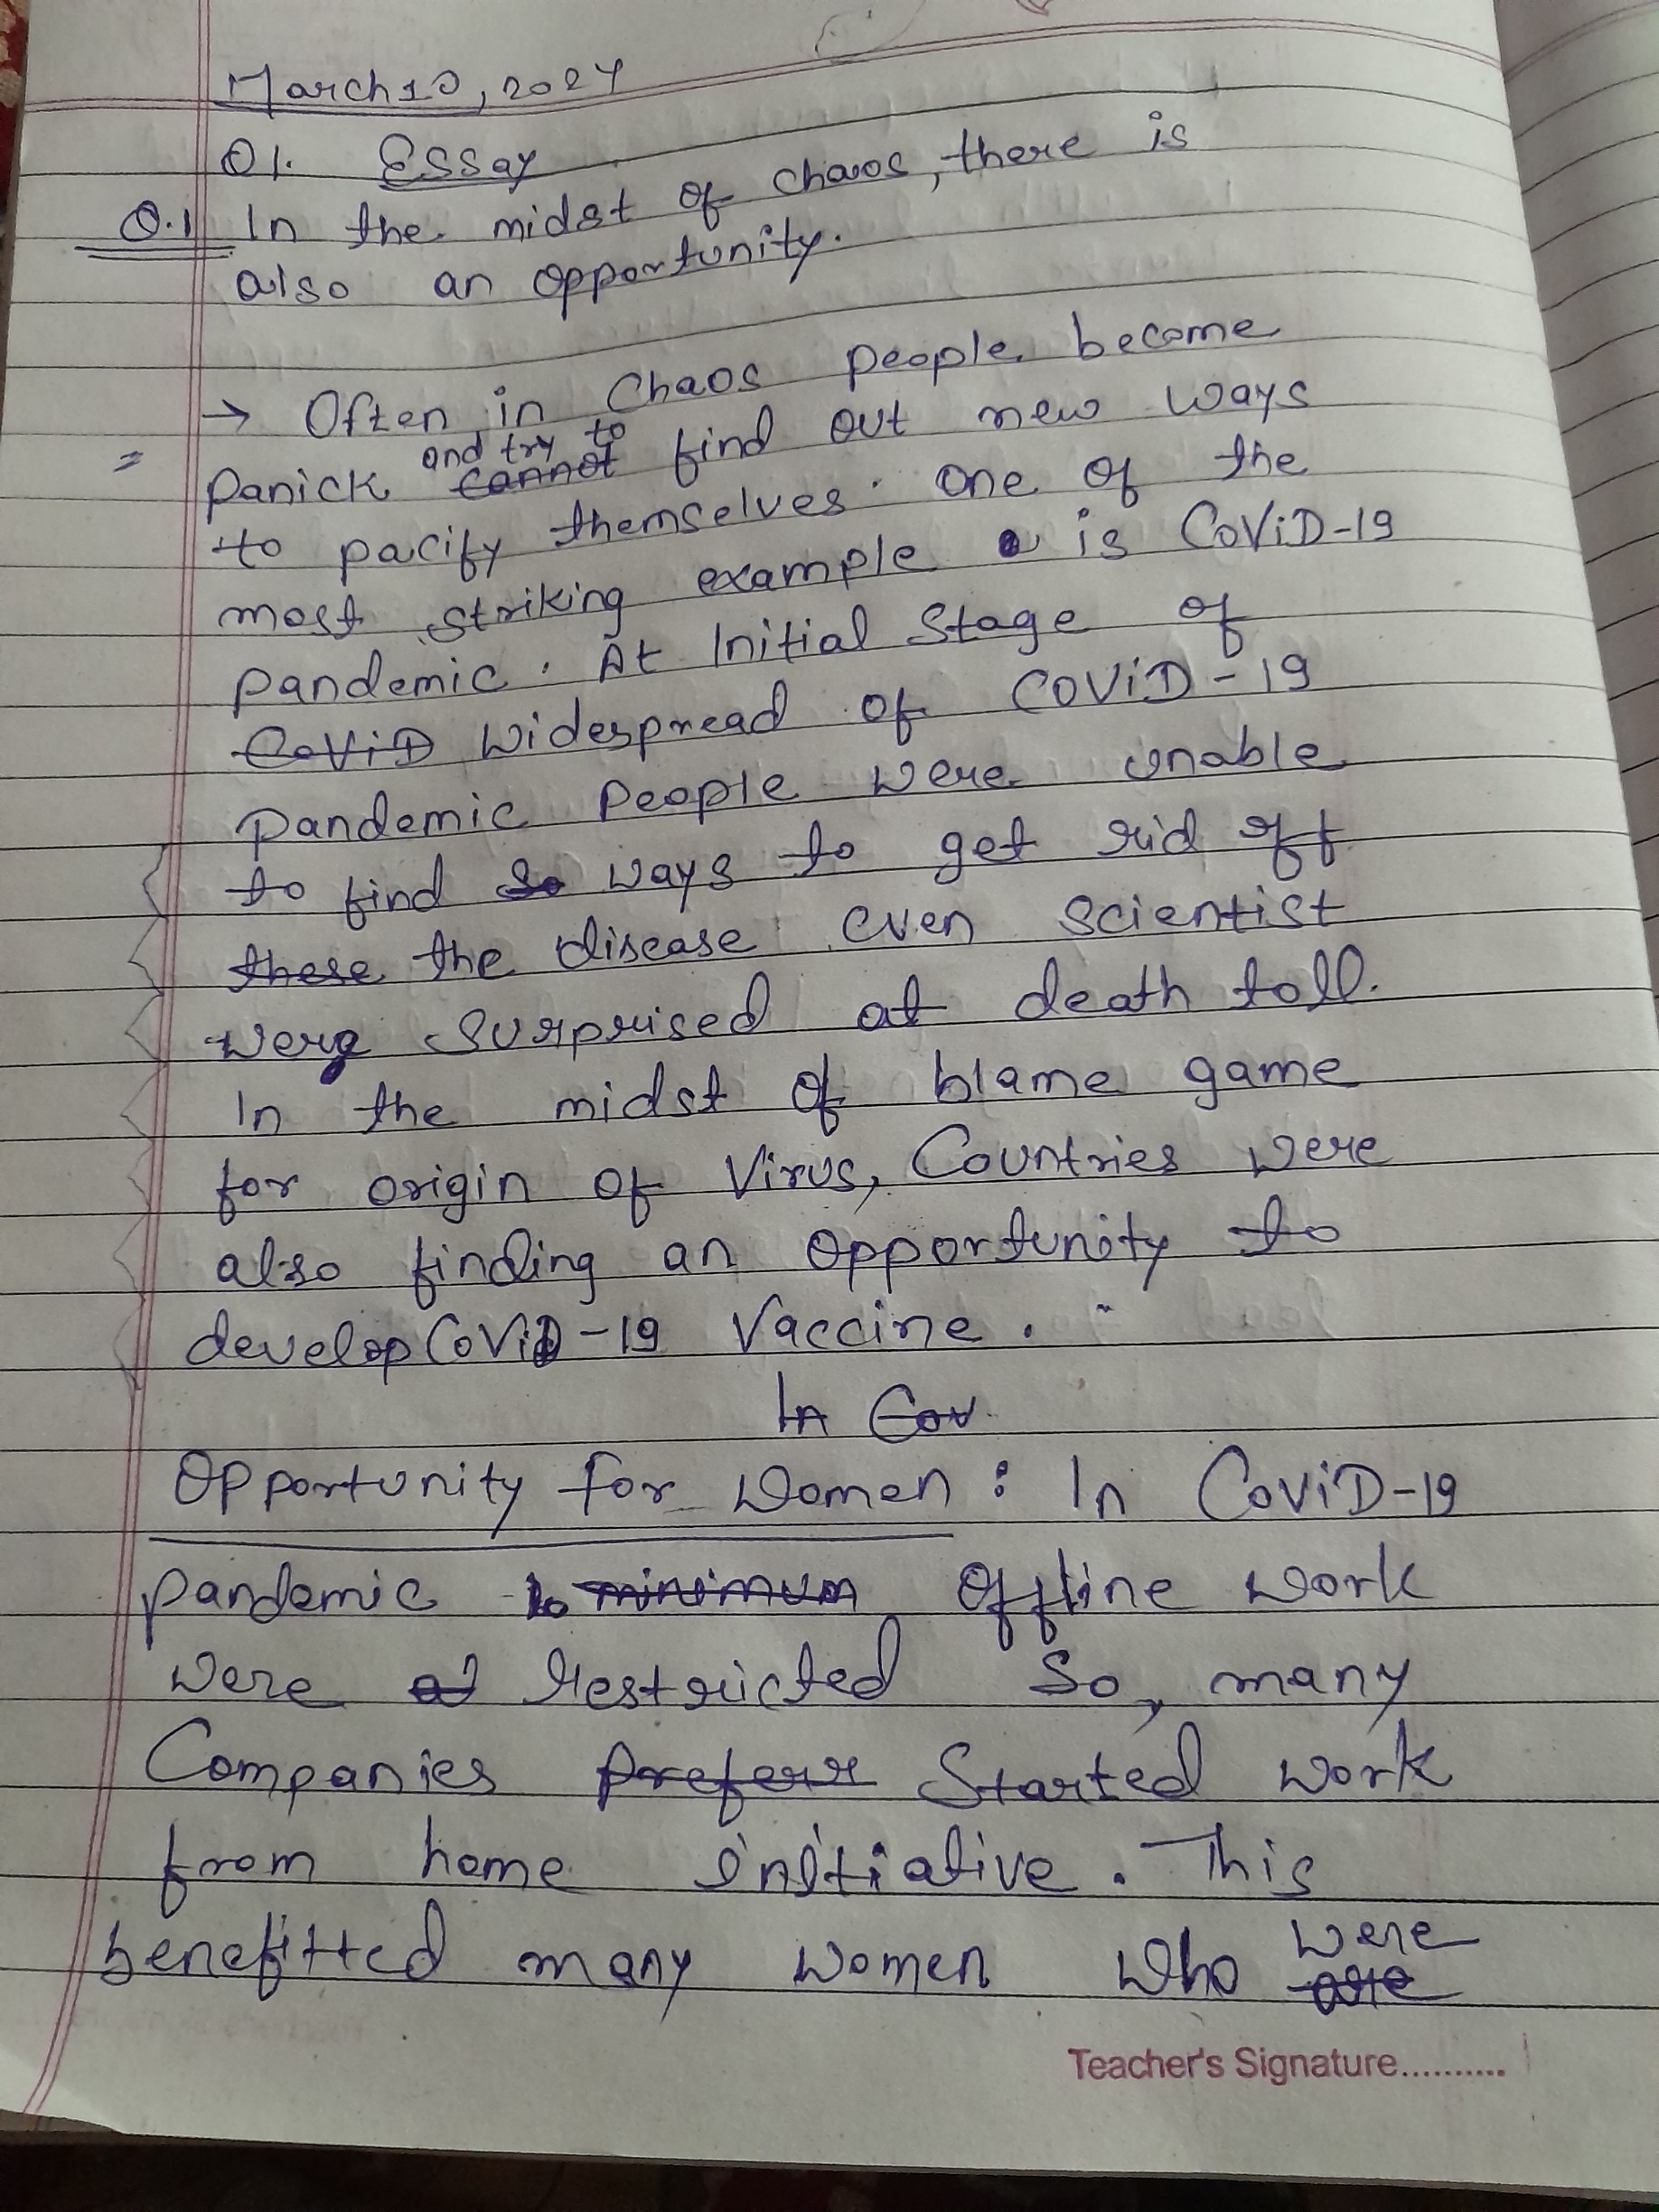 March 10, 2024
Q1. Essay
Q.1 In the midst of chaos, there is
also an opportunity.
→ Often in Chaos people become
and try to
= Panick cannot find out new ways
to pacify themselves. One of the
most striking example is CoViD-19
pandemic. At Initial Stage of
CoViD Widespread of COViD-19
Pandemic People were unable
to find so ways to get rid off
these the disease even scientist
were surprised at death toll.
In the midst of blame game
for origin of Virus, Countries were
also finding an opportunity to
develop CoViD-19 Vaccine.
In Cov
Opportunity for Women : In CoViD-19
pandemic minimum Offline work
were restricted So, many
Companies preferr Started work
from home initiative. This
were
benefitted many women who are
Teacher's Signature..........